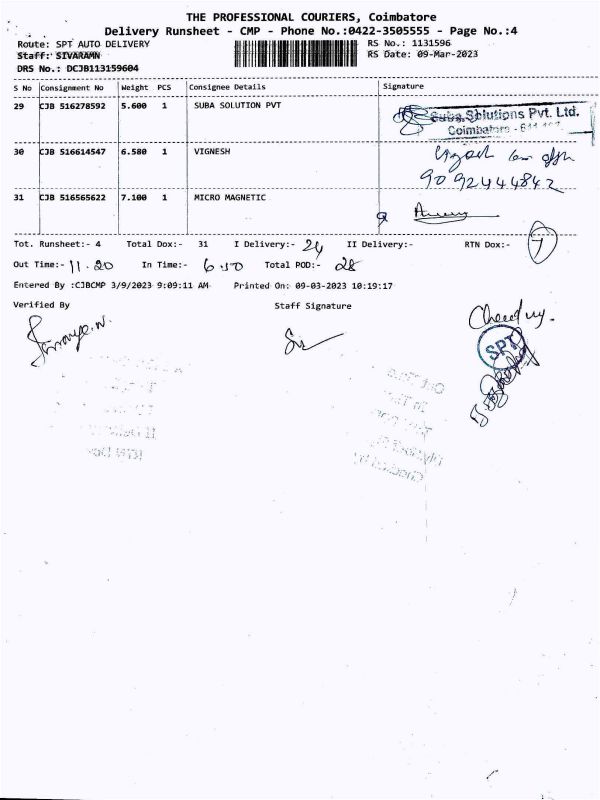 THE PROFESSIONAL COURIERS, Coimbatore
Delivery Runsheet - CMP - Phone No.:0422-3505555 - Page No.:4
Route: SPT AUTO DELIVERY RS No.: 1131596
Staff: SIVARAMN RS Date: 09-Mar-2023
DRS No.: DCJB113159604
S No Consignment No Weight PCS Consignee Details Signature
29 CJB 516278592 5.600 1 SUBA SOLUTION PVT
Suba Solutions Pvt. Ltd.
Coimbatore - 641
30 CJB 516614547 6.580 1 VIGNESH
9092444842
31 CJB 516565622 7.100 1 MICRO MAGNETIC
Tot. Runsheet:- 4 Total Dox:- 31 I Delivery:- 24 II Delivery:- RTN Dox:- 7
Out Time:- 11.20 In Time:- 6.10 Total POD:- 28
Entered By :CJBCMP 3/9/2023 9:09:11 AM Printed On: 09-03-2023 10:19:17
Verified By Staff Signature
SPT